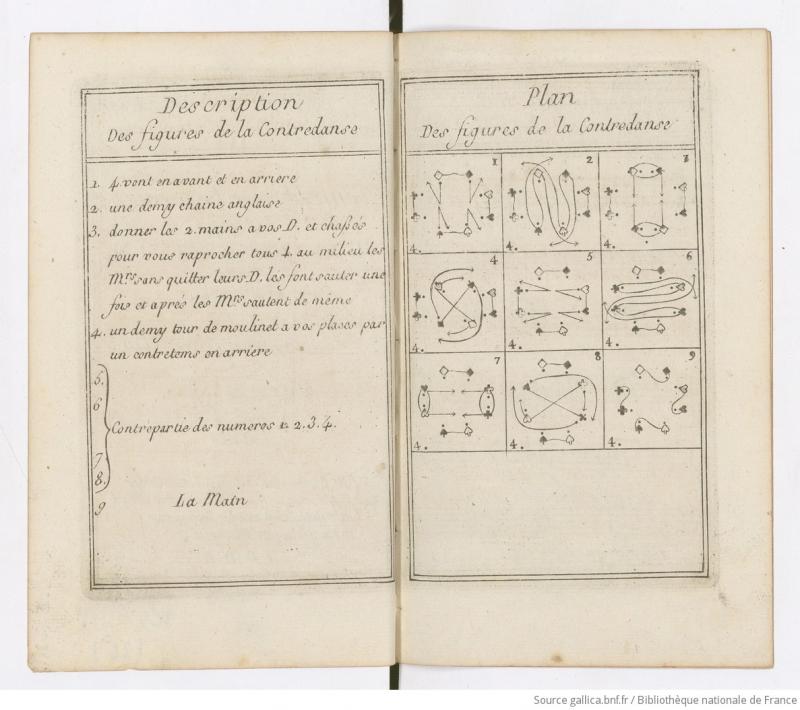 Description
Des figures de la Contredanse
1. 4. vont en avant et en arriere
2. une demy chaine anglaise
3. donner les 2. mains a vos D. et chassés
pour vous raprocher tous 4. au milieu les
Mrs sans quitter leurs D. les font sauter une
fois et aprés les Mrs sautent de méme
4. un demy tour de moulinet a vos plases par
un contretems en arriere
5.
6
Contrepartie des numeros 1. 2. 3. 4.
7
8.
9 La Main
Plan
Des figures de la Contredanse
1 2 3
4. 4. 4.
4 5 6
4. 4. 4.
7 8 9
4. 4. 4.
Source gallica.bnf.fr / Bibliothèque nationale de France